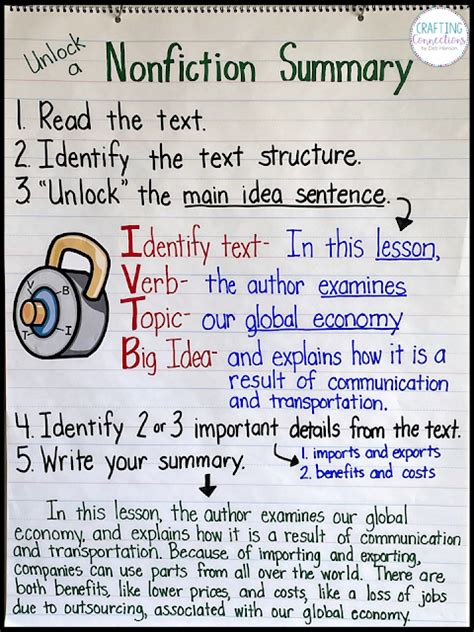 CRAFTING
Connections
by Deb Hanson
Unlock
a
Nonfiction Summary
1. Read the text.
2. Identify the text structure.
3. "Unlock" the main idea sentence.
Identify text- In this lesson,
Verb- the author examines
Topic- our global economy
Big Idea- and explains how it is a
result of communication
and transportation.
V
B
T
I
4. Identify 2 or 3 important details from the text.
5. Write your summary.
1. imports and exports
2. benefits and costs
In this lesson, the author examines our global
economy, and explains how it is a result of communication
and transportation. Because of importing and exporting,
companies can use parts from all over the world. There are
both benefits, like lower prices, and costs, like a loss of jobs
due to outsourcing, associated with our global economy.